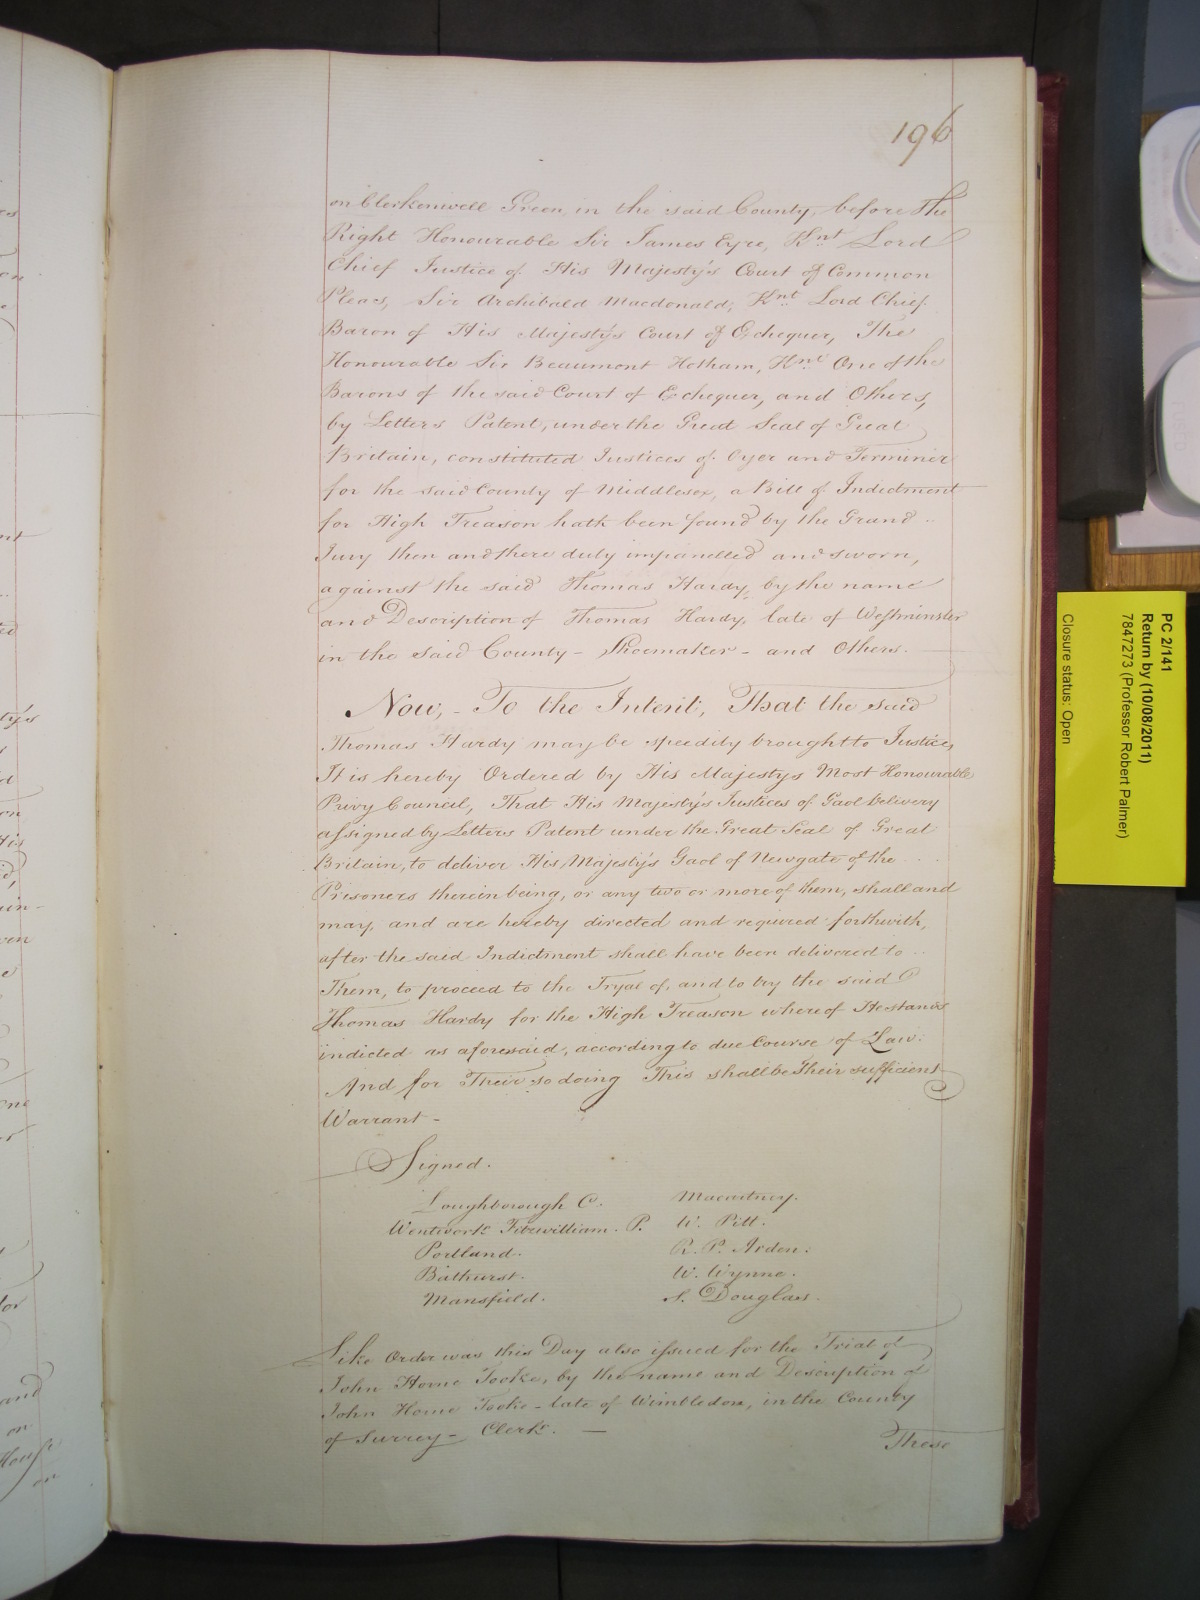 196
on Clerkenwell Green, in the said County, before The
Right Honourable Sir James Eyre, Knt Lord
Chief Justice of His Majesty's Court of Common
Pleas, Sir Archibald Macdonald, Knt Lord Chief
Baron of His Majesty's Court of Exchequer, The
Honourable Sir Beaumont Hotham, Knt One of the
Barons of the said Court of Exchequer, and Others,
by Letters Patent, under the Great Seal of Great
Britain, constituted Justices of Oyer and Terminer
for the said County of Middlesex, a Bill of Indictment
for High Treason hath been found by the Grand
Jury then and there duly impanelled and sworn,
against the said Thomas Hardy, by the name
and Description of Thomas Hardy, late of Westminster
in the said County - Shoemaker - and Others.
Now, - To the Intent, That the said
Thomas Hardy may be speedily brought to Justice,
It is hereby Ordered by His Majestys Most Honourable
Privy Council, That His Majesty's Justices of Gaol Delivery
assigned by Letters Patent under the Great Seal of Great
Britain, to deliver His Majesty's Gaol of Newgate of the
Prisoners therein being, or any two or more of them, shall and
may, and are hereby directed and required forthwith,
after the said Indictment shall have been delivered to
Them, to proceed to the Tryal of, and to try the said
Thomas Hardy for the High Treason whereof He stands
indicted as aforesaid, according to due Course of Law:
And for Their so doing This shall be Their sufficient
Warrant -
Signed.
Loughborough C. Macartney.
Wentwork Fitzwilliam. P. W. Pitt.
Portland. R. P. Arden.
Bathurst. W. Wynne.
Mansfield. S. Douglas.
Like Order was this Day also issued for the Trial of
John Horne Tooke, by the name and Description of
John Horne Tooke - late of Wimbledon, in the County
of Surrey - Clerk. -
These
PC 2/141
Return by (10/08/2011)
7847273 (Professor Robert Palmer)
Closure status: Open